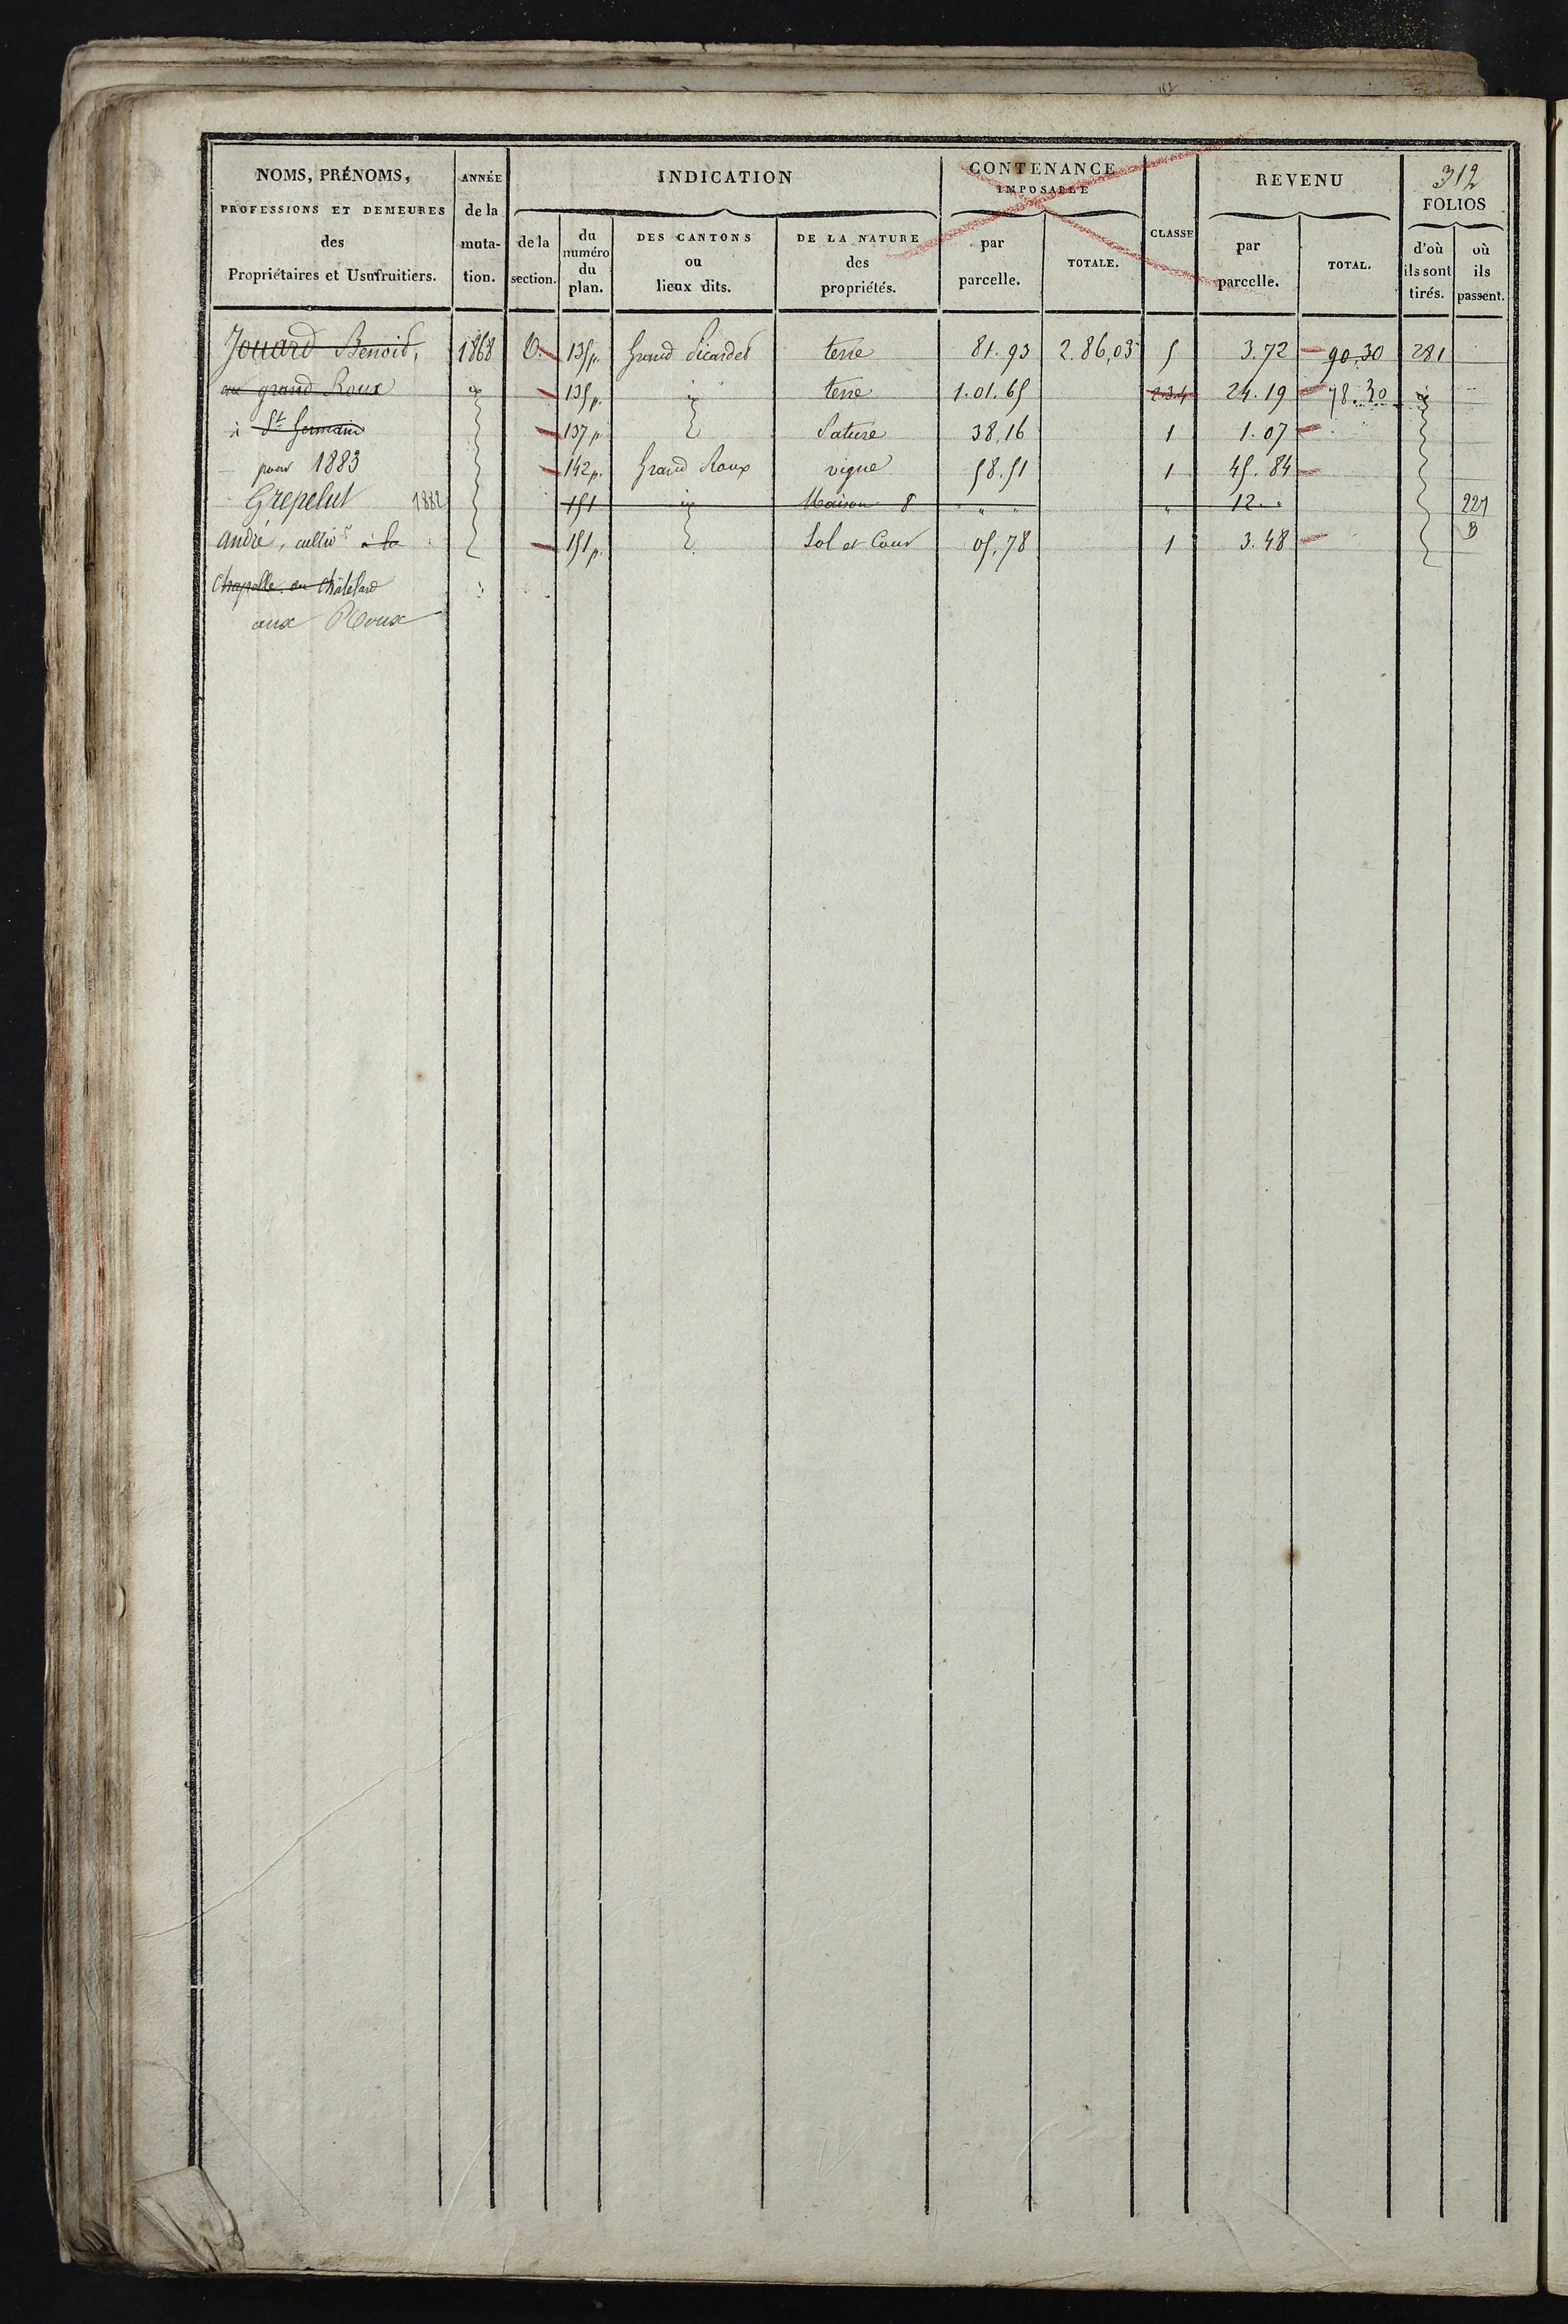 112
NOMS, PRÉNOMS,
PROFESSIONS ET DEMEURES
des
Propriétaires et Usufruitiers.
ANNÉE
de la
muta-
tion.
INDICATION
de la
section.
du
numéro
du
plan.
DES CANTONS
ou
lieux dits.
DE LA NATURE
des
propriétés.
CONTENANCE
IMPOSABLE
par
parcelle.
TOTALE.
CLASSE
REVENU
par
parcelle.
TOTAL.
312
FOLIOS
d'où
ils sont
tirés.
où
ils
passent.
Jouard Benoit, 1868 D. 135p. Grand Picardet terre 81.93 2.86,03 5 3.72 90.30 281
au grand Roux id 135p. id terre 1.01.65 2.3.4 24.19 78.30 id
à St Germain 137p. Pature 38,16 1 1.07
pour 1883 142p. Grand Roux vigne 58.51 1 45.84
Grepelut 1882 151 id Maison 8 " " " 12 " 227
André, cultivr à la 151p. Sol et Cour 05,78 1 3.48 B
Chapelle au Châtelard
aux Roux